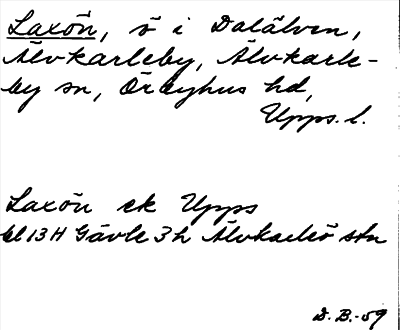 Laxön, ö i Dalälven,
Älvkarleby, Älvkarle-
by sn, Örbyhus hd,
Upps. l.
Laxön ek Upps
bl 13 H Gävle 3 h Älvkarleö stn
D. B.-59